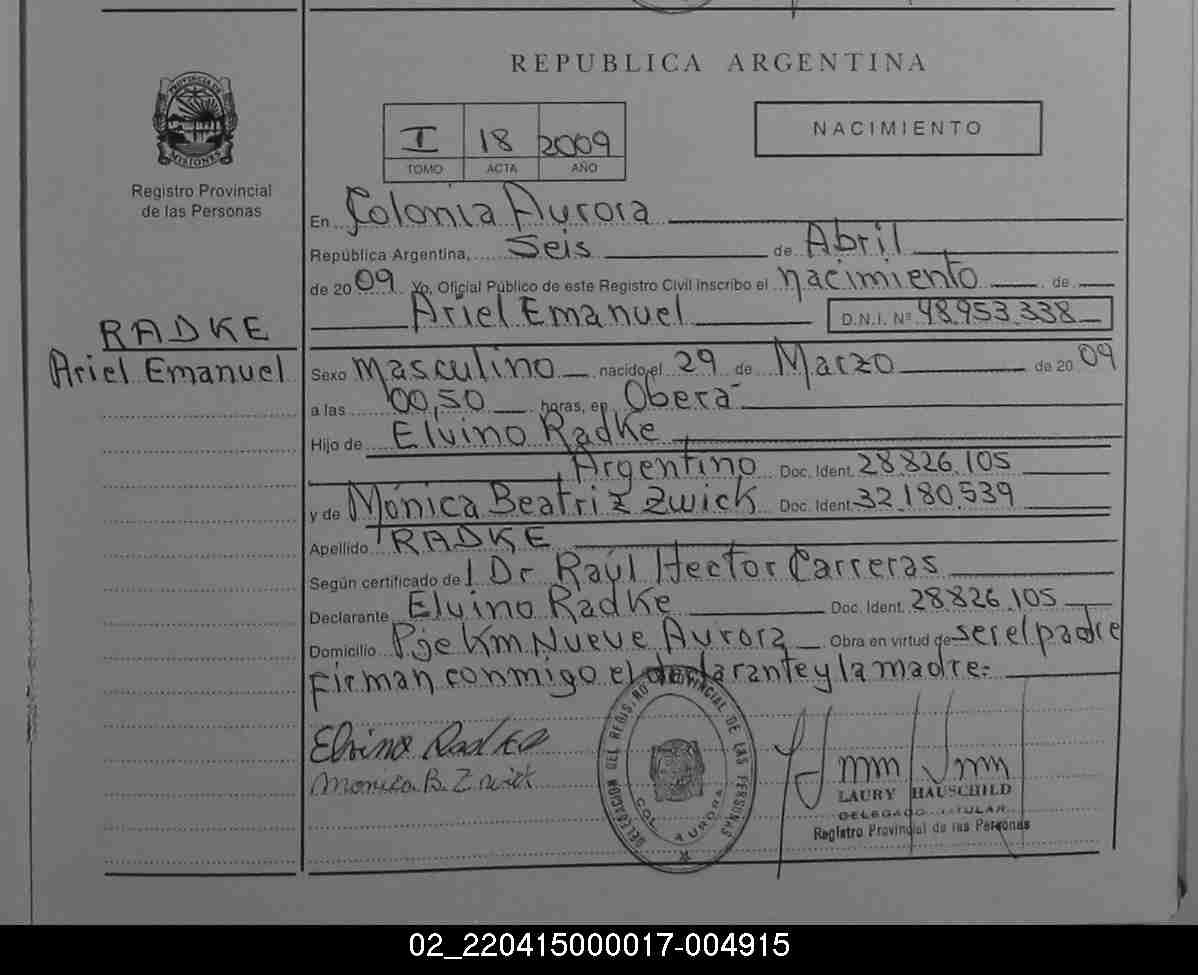 REPUBLICA ARGENTINA
PROVINCIA DE
MISIONES
Registro Provincial
de las Personas
I 18 2009
TOMO ACTA AÑO
NACIMIENTO
En Colonia Aurora
República Argentina, Seis de Abril
de 2009 Yo, Oficial Público de este Registro Civil inscribo el nacimiento de
Ariel Emanuel D.N.I. Nº 48.953.338
RADKE
Ariel Emanuel
Sexo Masculino nacido el 29 de Marzo de 2009
a las 00,50 horas, en Oberá
Hijo de Elvino Radke
Argentino Doc. Ident. 28.826.105
y de Mónica Beatriz Zwick Doc. Ident. 32.180.539
Apellido RADKE
Según certificado de l Dr Raúl Hector Carreras
Declarante Elvino Radke Doc. Ident. 28.826.105
Domicilio Pje Km Nueve Aurora Obra en virtud de ser el padre
Firman conmigo el declarante y la madre.
Elvino Radke
Monica B. Zwick
DELEGACION DEL REGISTRO PROVINCIAL DE LAS PERSONAS
COL. AURORA
LAURY HAUSCHILD
DELEGADO TITULAR
Registro Provincial de las Personas
02_220415000017-004915